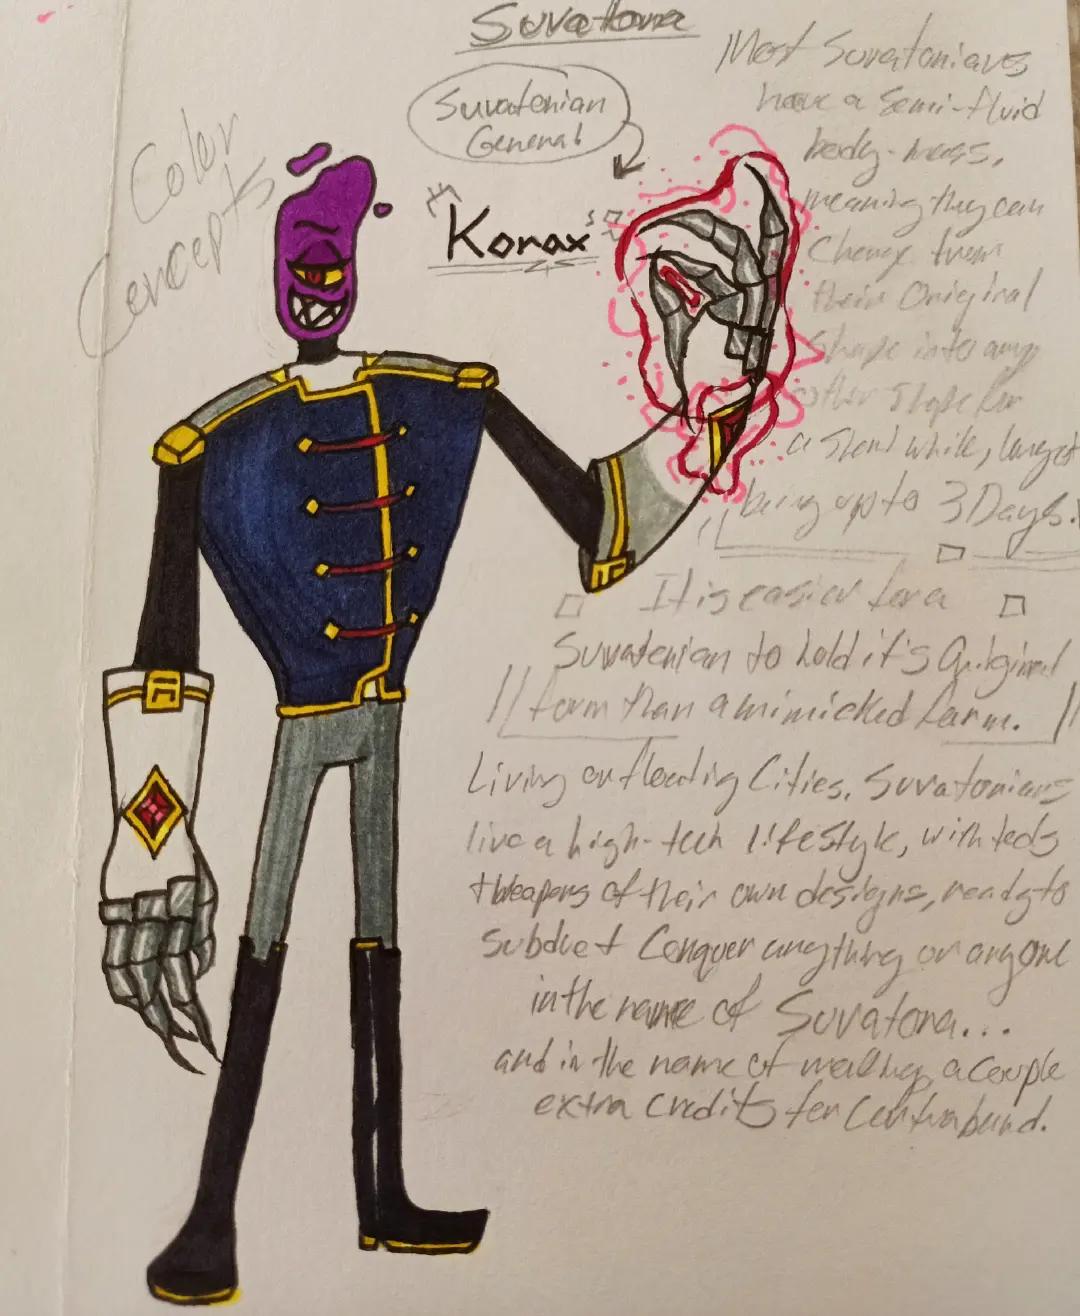 Suvatona
Color
Concepts
Suvatonian
General
Korax
Most Suvatonians
have a semi-fluid
body-mass,
meaning they can
Change from
their Original
Shape into any
other shape for
a short while, longest
being up to 3 Days.
It is easier for a
Suvatonian to hold it's Original
form than a mimicked form.
Living on floating Cities, Suvatonians
live a high-tech lifestyle, with
+ weapons of their own designs, ready to
subdue + Conquer anything or anyone
in the name of Suvatona...
and in the name of making a couple
extra Credits for Contraband.